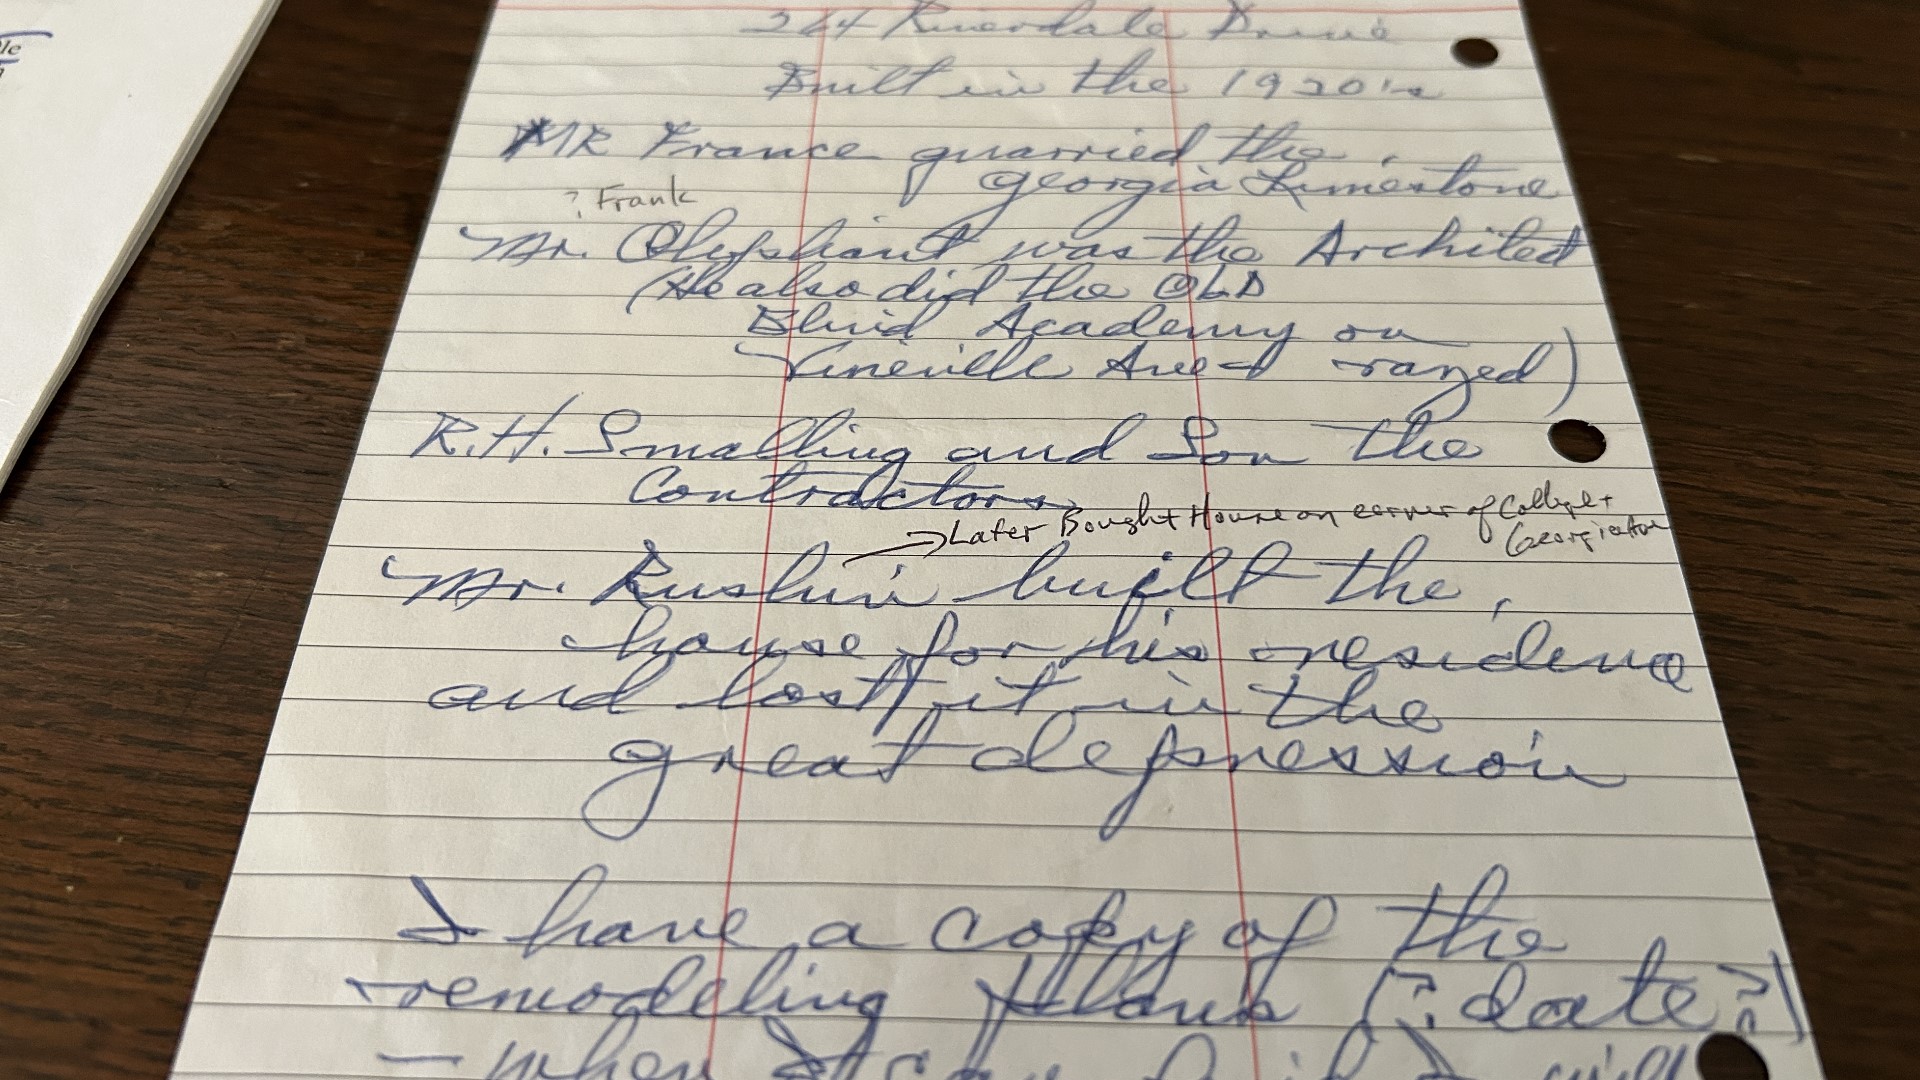 le
264 Riverdale Drive
Built in the 1920's
MR France quarried the
Georgia Limestone
? Frank
Mr. Olyphant was the Architect
(He also did the OLD
Blind Academy on
Vineville Ave - razed)
R.H. Smalling and Son the
Contractors
→ Later Bought House on corner of College +
Georgia Ave
Mr. Ruskin built the
house for his residence
and lost it in the
great depression
I have a copy of the
remodeling plans (? date?)
- when
will